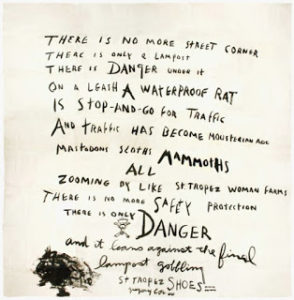 THERE IS NO MORE STREET CORNER
THERE IS ONLY A LAMPOST
THERE IS DANGER UNDER IT
ON A LEASH A WATERPROOF RAT
IS STOP-AND-GO FOR TRAFFIC
AND TRAFFIC HAS BECOME MOUSTERIAN AGE
MASTODONS SLOTHS MAMMOTHS
ALL
ZOOMING BY LIKE ST TROPEZ WOMAN FARMS
THERE IS NO MORE SAFETY PROTECTION
THERE IS ONLY DANGER
and it leans against the final
lampost gobbling
ST TROPEZ SHOES